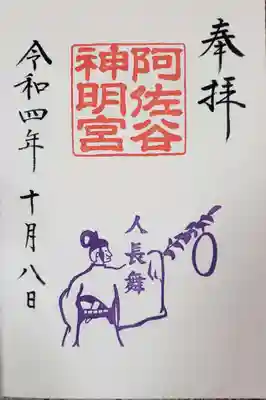 奉拝
阿佐谷
神明宮
人長舞
令和四年 十月八日